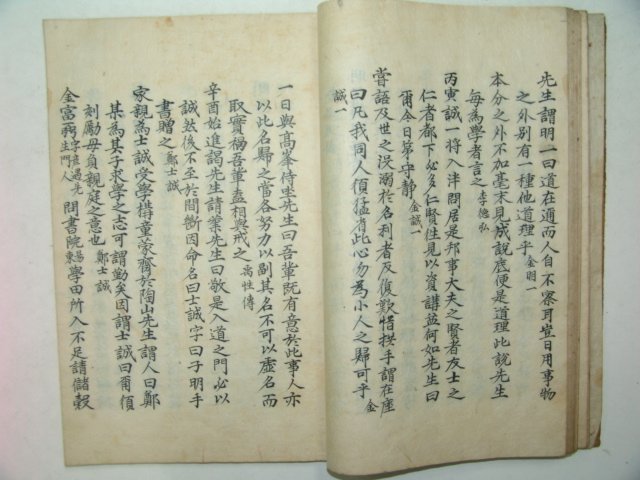 先生謂明一曰道在邇而人自不察耳豈日用事物
之外別有一種他道理乎 金明一
本分之外不加毫末見成說底便是道理此說先生
每為學者言之 李德弘
丙寅誠一將入泮問居是邦事大夫之賢者友士之
仁者都下必多仁賢往見以資講益何如先生曰
爾今日第守静 金誠一
嘗語及世之沒溺於名利者反復歎惜拱手謂在座
曰凡我同人須猛省此心勿為小人之歸可乎 金
誠一
一日與高峯侍坐先生曰吾輩既有意於此事人亦
以此名歸之當各努力以副其名不可以虛名而
取實禍吾輩盍相與戒之 尚性傳
辛酉始進謁先生請業先生曰敬是入道之門必以
誠然後不至於間斷因命名曰士誠字曰子明手
書贈之 鄭士誠
家親為士誠受學構童蒙齋於陶山先生謂人曰鄭
某為其子求學之志可謂勤矣因謂士誠曰爾須
刻勵毋負親庭之意也 鄭士誠
金富弼 字 先生門人 問書院 易東 學田所入不足請儲穀